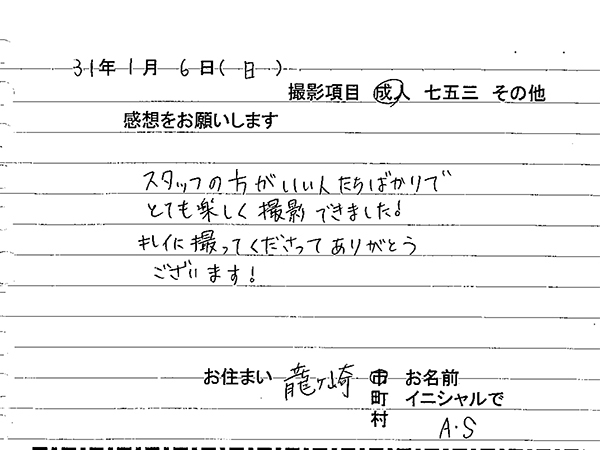 31年1月6日(日)
撮影項目 成人 七五三 その他
感想をお願いします
スタッフの方がいい人たちばかりで
とても楽しく撮影できました!
キレイに撮ってくださってありがとう
ございます!
お住まい 龍ヶ崎 市 お名前
町 イニシャルで
村 A.S